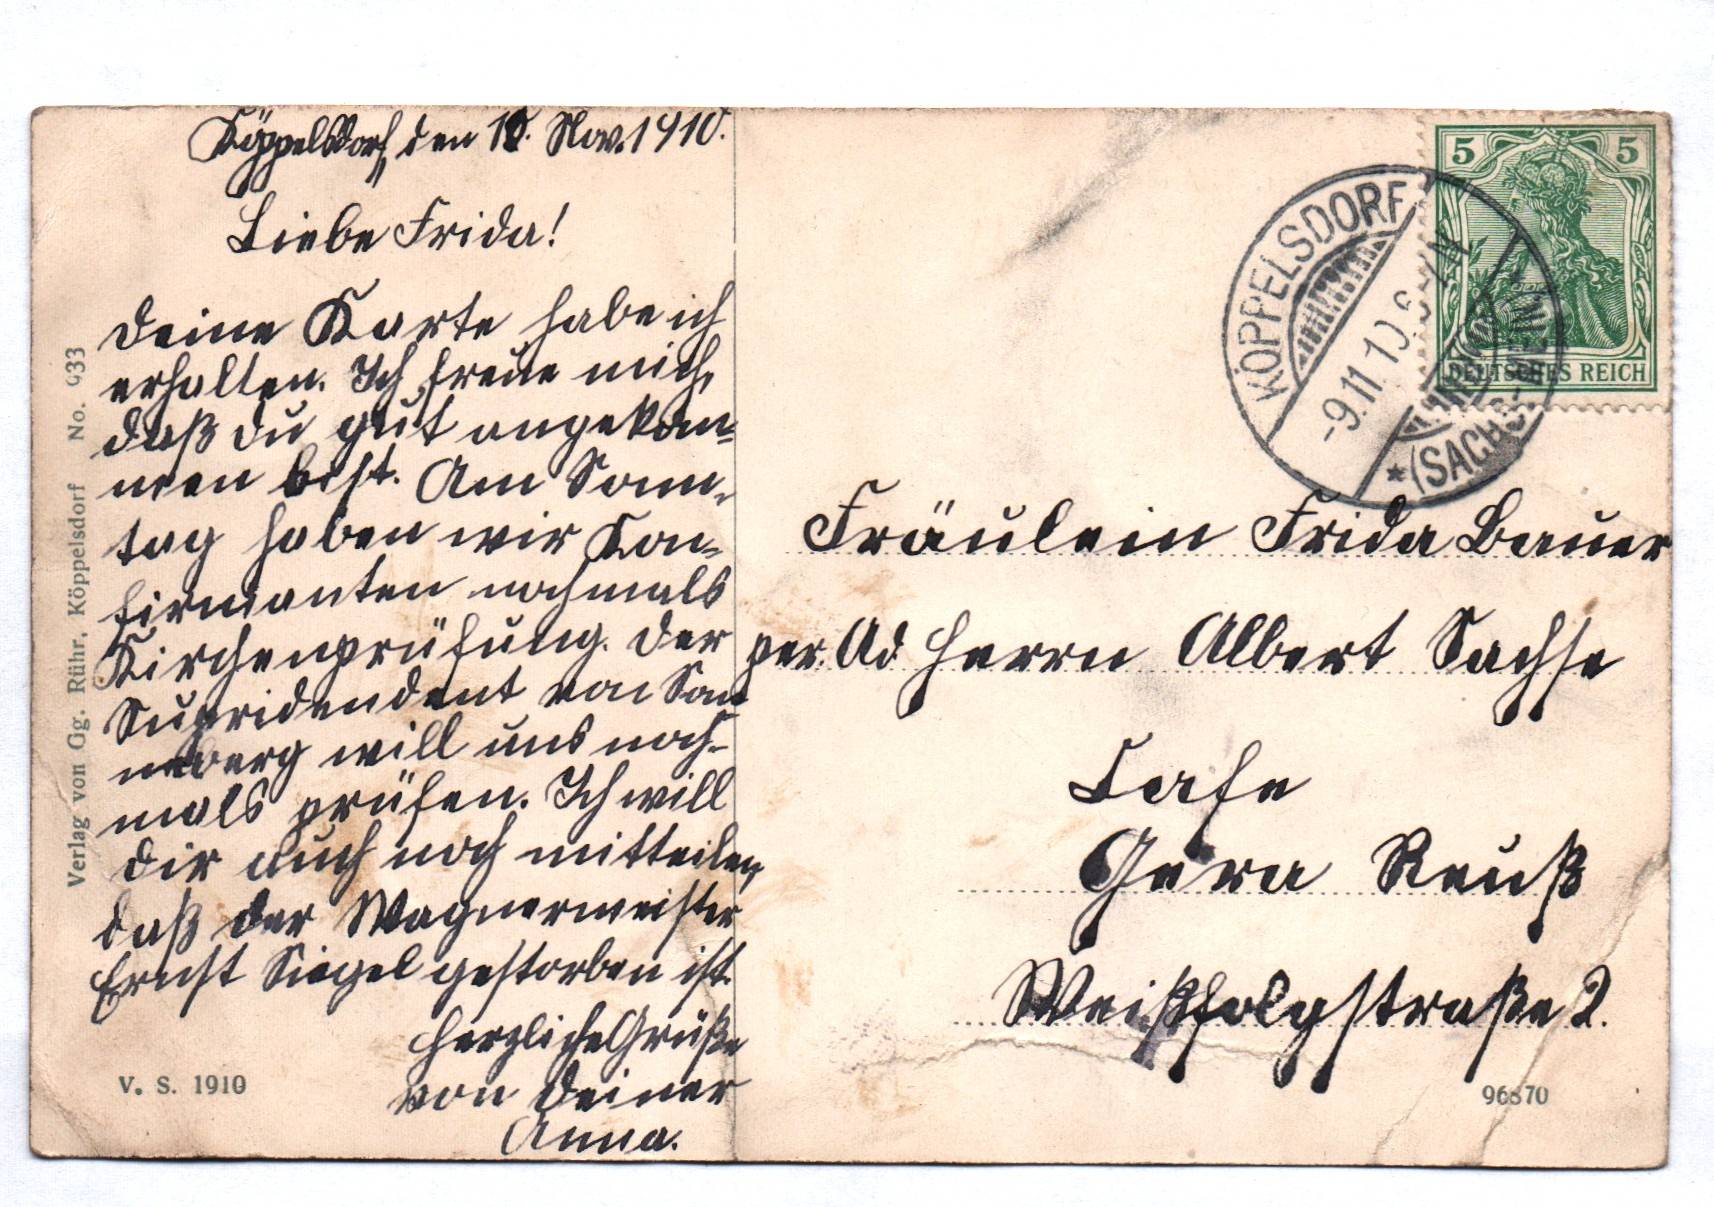 Köppelsdorf, den 10. Nov. 1910.
Liebe Frida!
Deine Karte habe ich
erhalten. Ich freue mich,
daß du gut angekom-
men bist. Am Sonn-
tag haben wir Kon-
firmanten nochmals
Kirchenprüfung. Der
Supridendent von Son
neberg will uns noch-
mals prüfen. Ich will
dir auch noch mitteilen,
daß der Wagnermeister
Ernst Siegel gestorben ist.
Herzliche Grüße
von deiner
Anna.
V. S. 1910
Verlag von Gg. Rühr, Köppelsdorf No. 933
5 5
DEUTSCHES REICH
KÖPPELSDORF
-9.11.10. 6-7 N
* (SACHS.-MEIN.)
Fräulein Frida Bauer
per. Ad Herrn Albert Sachse
Cafe
Gera Reuß
2.
96870